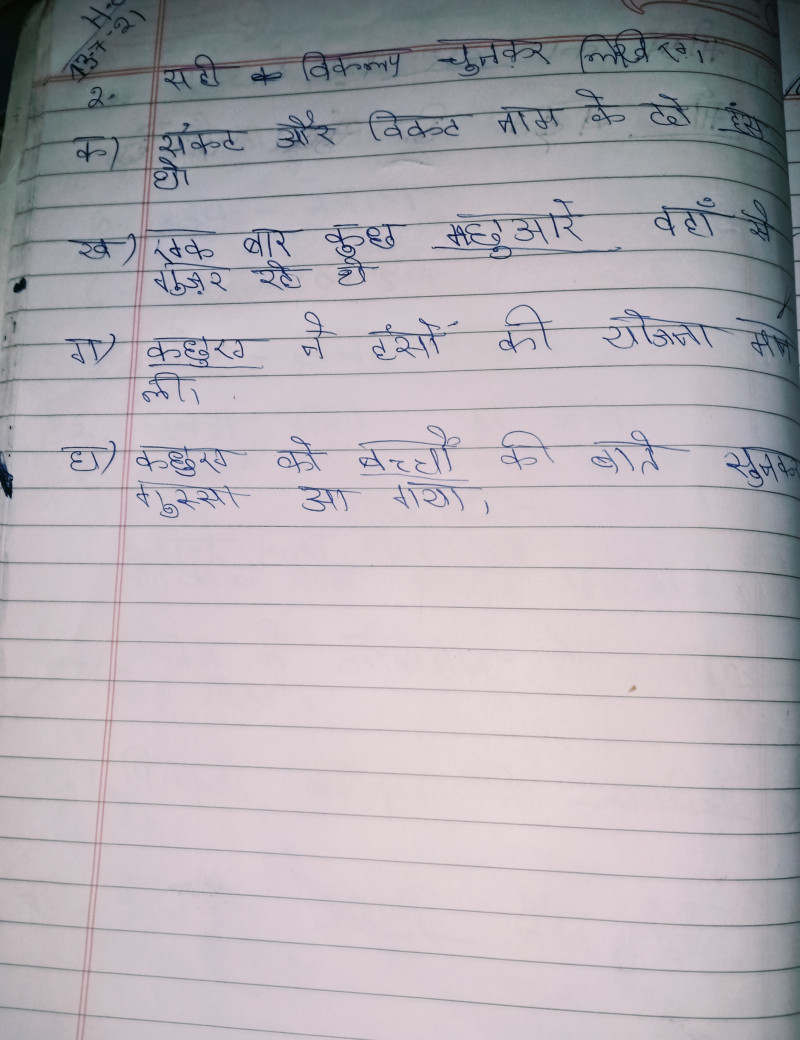 H.C
13-7-21
2. सही विकल्प चुनकर लिखिए।
क) संकट और विकट नाम के दो हंस
थे।
ख) एक बार कुछ मछुआरे वहाँ से
गुज़र रहे थे
ग) कछुए ने हंसों की योजना मान
ली।
घ) कछुए को बच्चों की बाते सुनकर
गुस्सा आ गया।